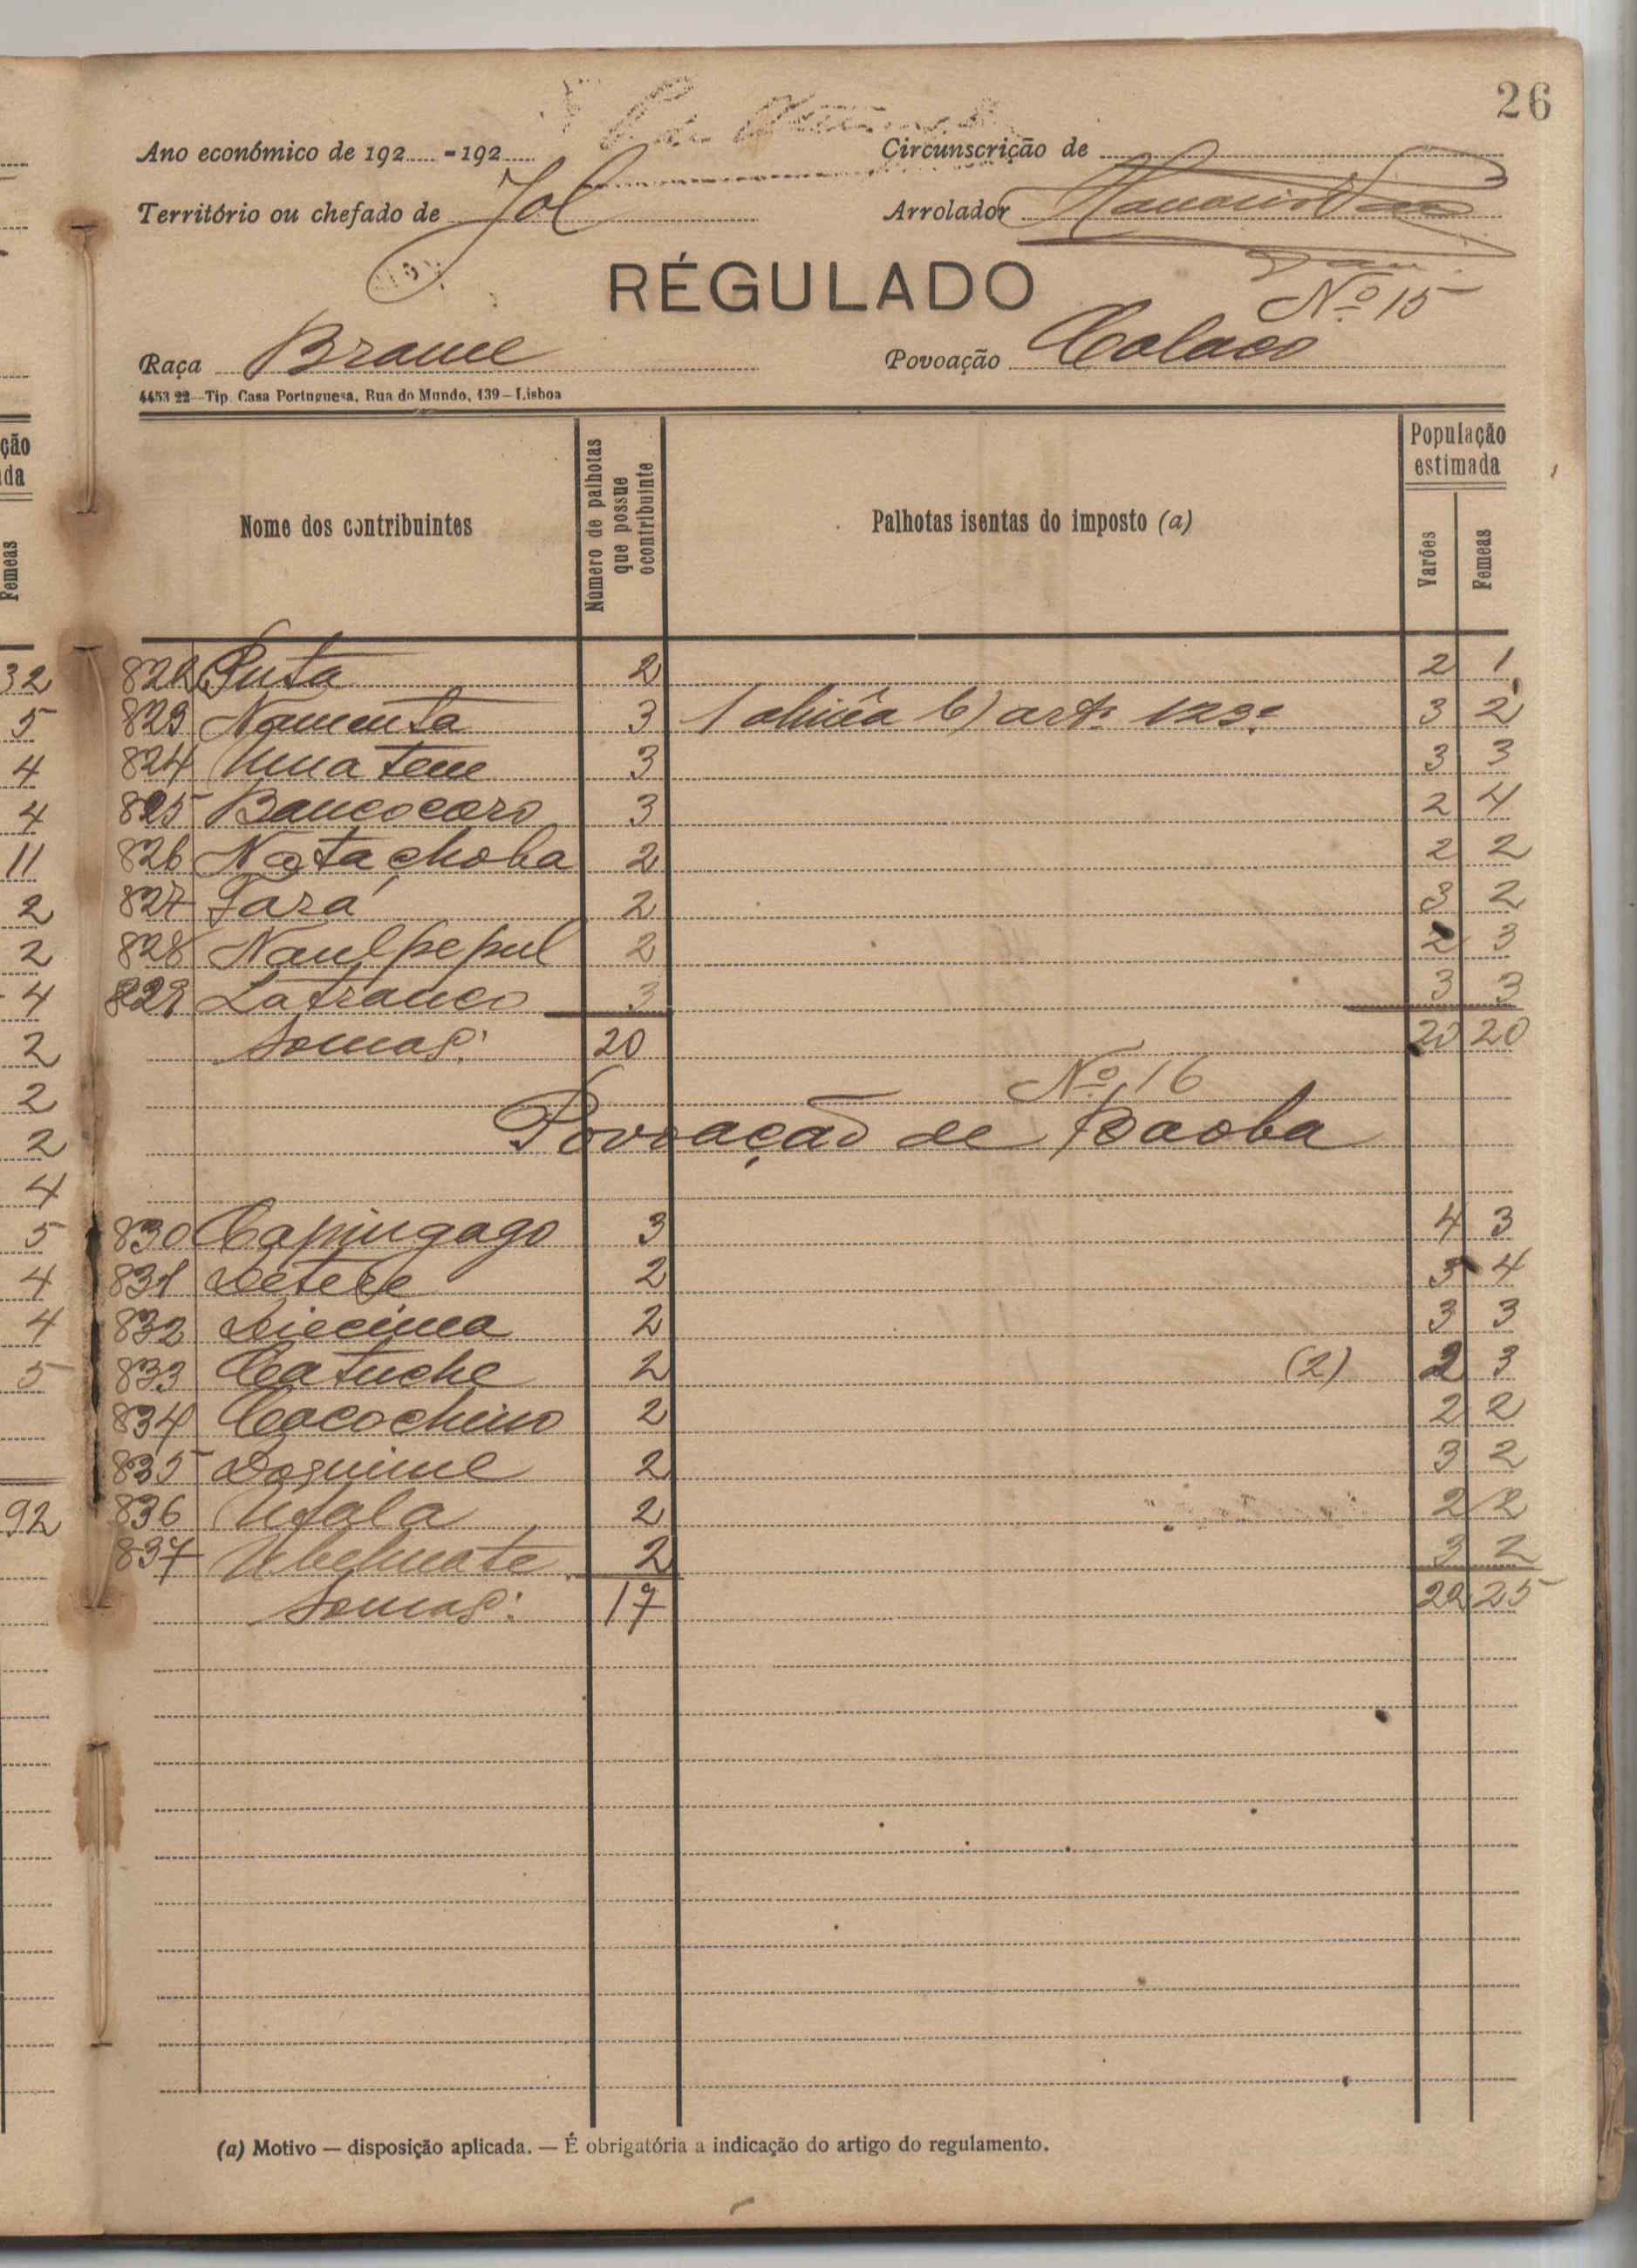 26
Ano económico de 192 - 192
Circunscrição de
Território ou chefado de Jol
Arrolador
RÉGULADO
Nº 15
Raça Brame
Povoação Colaco
4453 22—Tip. Casa Portuguesa, Rua do Mundo, 139—Lisboa
Nome dos contribuintes
Número de palhotas que possue o contribuinte
Palhotas isentas do imposto (a)
População estimada
Varões
Femeas
822 Puta 2 2 1
823 Namenta 3 1 alinêa b) artº 123º 3 2
824 Umatem 3 3 3
825 Bancocoro 3 2 4
826 Natachoba 2 2 2
827 Fará 2 3 2
828 Naulpepul 2 2 3
829 Latranco 3 3 3
Somas: 20 20 20
Nº 16
Povoação de Baoba
830 Capingago 3 4 3
831 Detele 2 3 4
832 Diecima 2 3 3
833 Catuche 2 (2) 2 3
834 Cacochino 2 2 2
835 Doguime 2 3 2
836 Ufala 2 2 2
837 2 3 2
Somas: 17 22 25
(a) Motivo — disposição aplicada. — É obrigatória a indicação do artigo do regulamento.
ção
da
Femeas
32
5
4
4
11
2
2
4
2
2
2
4
5
4
4
5
92